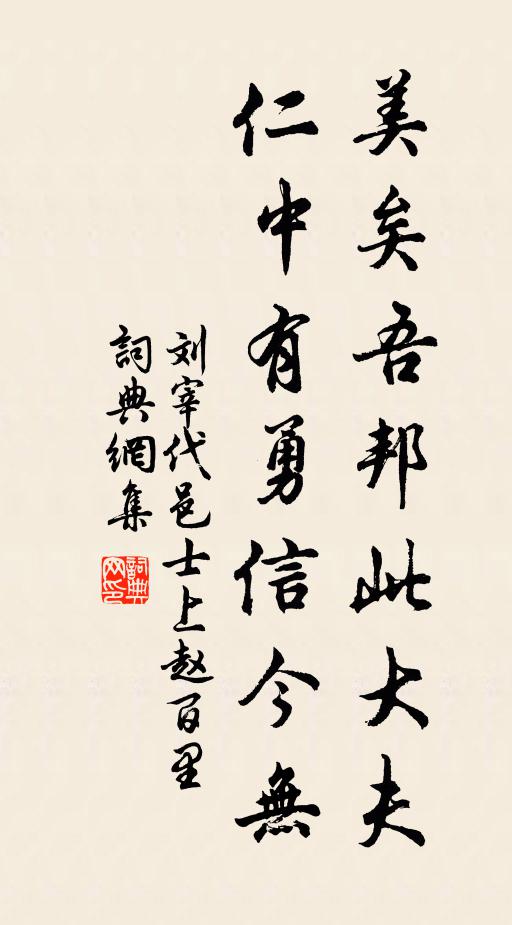 美矣吾邦此大夫
仁中有勇信今無
刘宰代邑士上赵百里
詞典網集
詞典网印